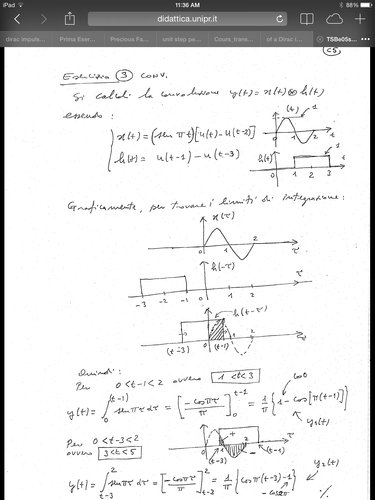 iPad 11:36 AM 88%
didattica.unipr.it
dirac impuls... Prima Eser... Precious Fa... unit step pe... Cours_trans... of a Dirac i... TSBe05s...
Esercizio 3 CONV.
Si calcoli la convoluzione y(t) = x(t) ⊗ h(t)
essendo:
x(t) = (sen πt)[u(t) - u(t-2)]
h(t) = u(t-1) - u(t-3)
(t) 1
0 1 2 t
h(t) 1
0 1 2 3 t
Graficamente, per trovare i limiti di integrazione:
x(τ)
0 1 2 τ
h(-τ)
-3 -2 -1 0 1 2 τ
h(t-τ)
(t-3) 0 (t-1) 2
Quindi:
Per 0<t-1<2 ovvero 1<t<3
cos0
y(t) = ∫₀^(t-1) sen πτ dτ = [-cosπτ/π]₀^(t-1) = 1/π {1 - cos[π(t-1)]}
y₁(t)
Per 0<t-3<2
ovvero 3<t<5
0 + 2 τ
(t-3) 1 (t-1)
y(t) = ∫_(t-3)^2 sen πτ dτ = [-cosπτ/π]_(t-3)^2 = 1/π {cosπ(t-3) - 1} y₂(t)
-cos2π